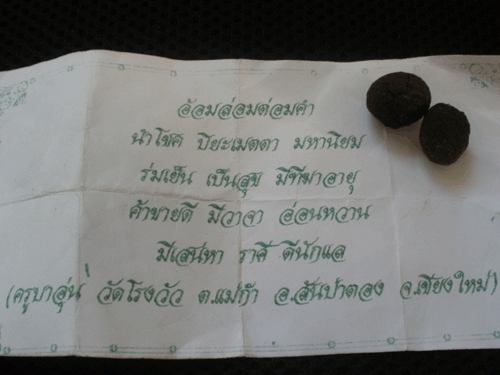 อ้อมล่อมต่อมคำ
นำโชค ปิยะเมตตา มหานิยม
ร่มเย็น เป็นสุข มีทีฆาอายุ
ค้าขายดี มีวาจา อ่อนหวาน
มีเสนหา ราศี ดีนักแล
(ครูบาอุ่น วัดโรงวัว ต.แม่ก๊า อ.สันป่าตอง จ.เชียงใหม่)